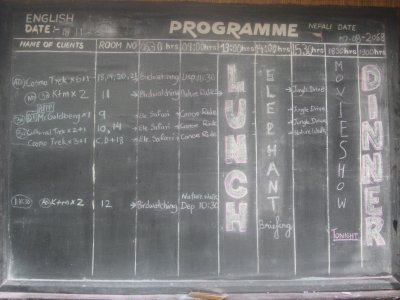 ENGLISH PROGRAMME
DATE:- 11 NEPALI DATE
2068
NAME OF CLIENTS ROOM NO hrs hrs 13:00hrs hrs 15:30hrs 18:30hrs 19:00hrs
Cosmo Trek x 6+1 18,19,20,21 Birdwatching Dep 10:30
Ktm x 2 11 Birdwatching Nature Walk Jungle Drive
Mr Goldberg x 1 9 Ele. Safari Canoe Ride Jungle Drive
Cultural Trex x 2+1 10, 14 Ele. Safari Canoe Ride Jungle Drive
Cosmo Trek x 3+1 Ele. Safari Canoe Ride Nature Walk
Ktm x 2 12 Birdwatching Nature Walk
Dep 10:30
LUNCH
ELEPHANT
Briefing
MOVIE SHOW
TONIGHT
DINNER